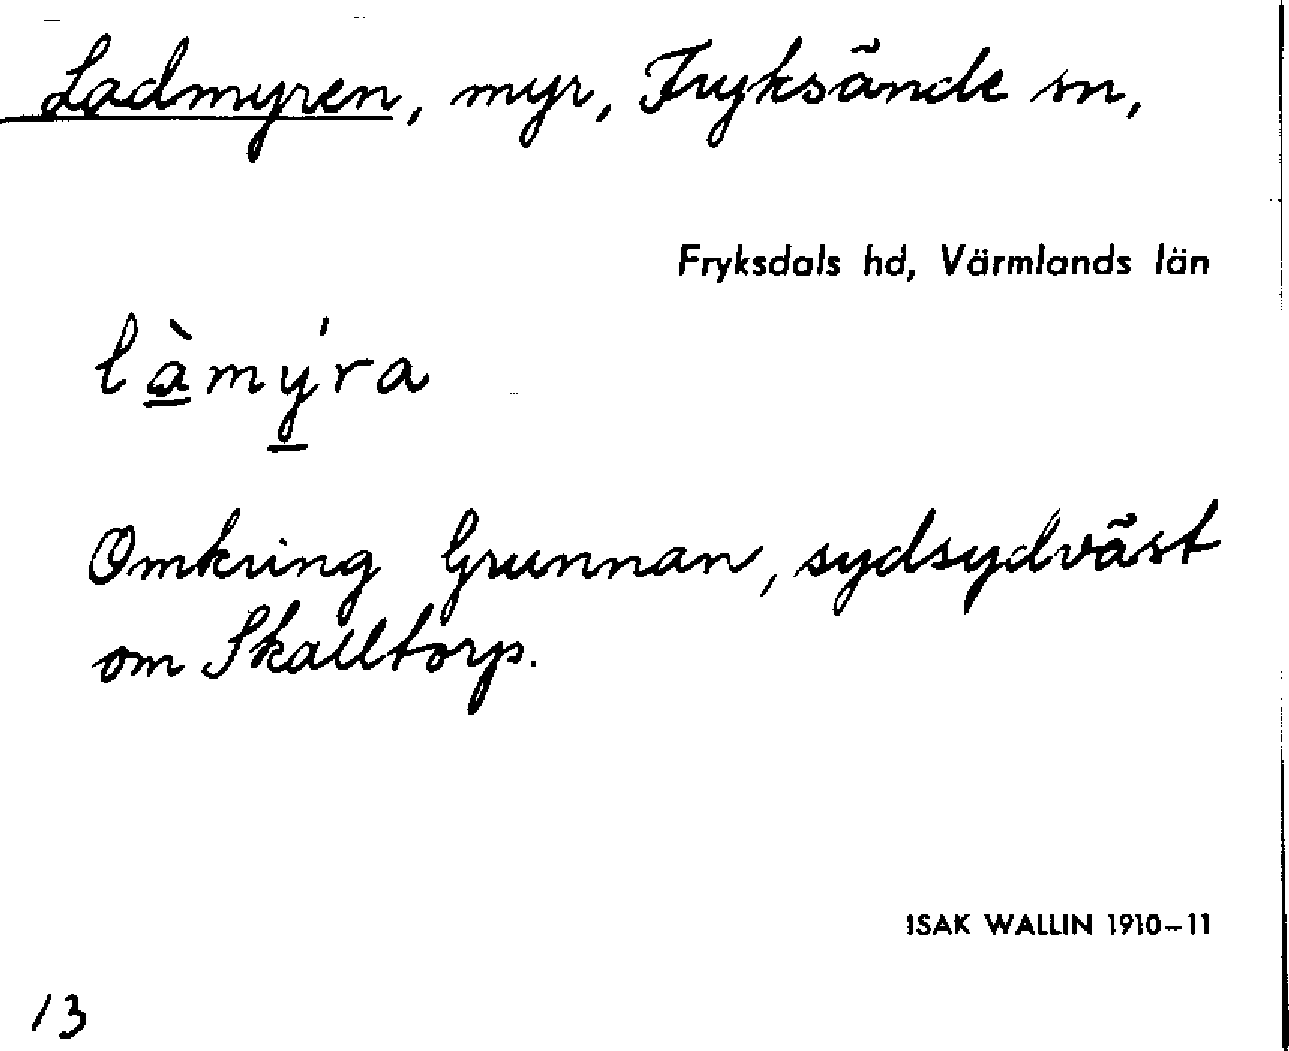 Ladmyren, myr, Fryksände sn,
Fryksdals hd, Värmlands län
làmy̍ra
Omkring Grunnan, sydsydväst
om Skalltorp.
ISAK WALLIN 1910–11
13